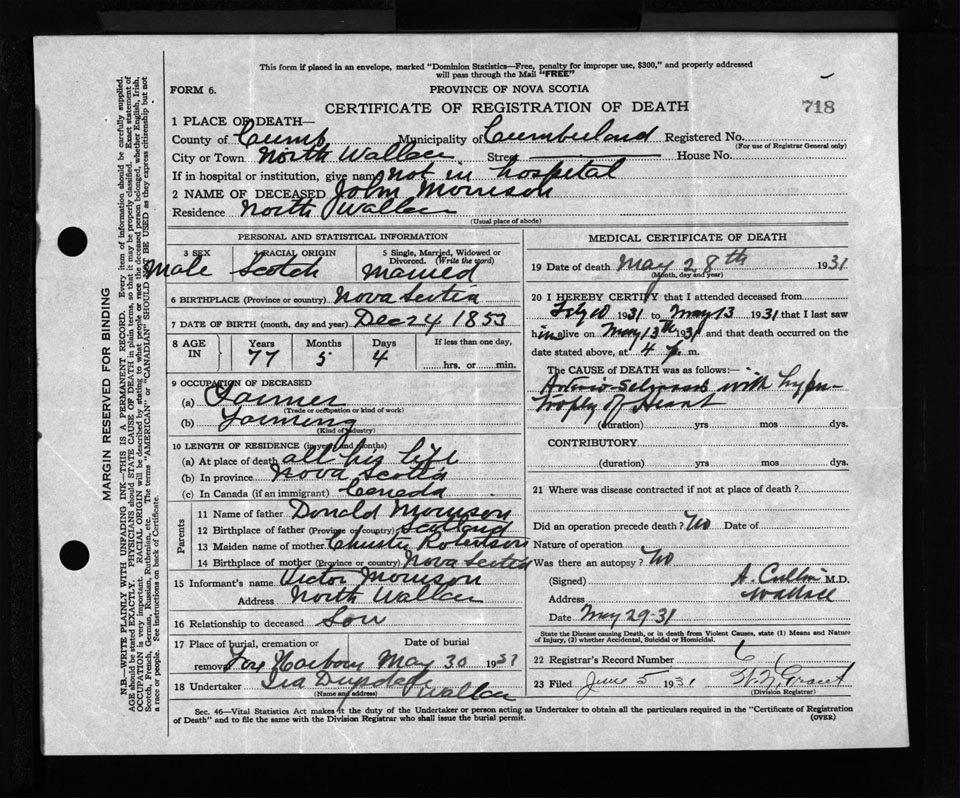 This form if placed in an envelope, marked "Dominion Statistics—Free, penalty for improper use, $300," and properly addressed
will pass through the Mail "FREE"
FORM 6.
PROVINCE OF NOVA SCOTIA
CERTIFICATE OF REGISTRATION OF DEATH
718
1 PLACE OF DEATH—
County of Cumb Municipality of Cumberland Registered No.
(For use of Registrar General only)
City or Town North Wallace Street House No.
If in hospital or institution, give name not in hospital
2 NAME OF DECEASED John Morrison
Residence North Wallace
(Usual place of abode)
PERSONAL AND STATISTICAL INFORMATION
3 SEX 4 RACIAL ORIGIN 5 Single, Married, Widowed or Divorced. (Write the word)
Male Scotch Married
6 BIRTHPLACE (Province or country) Nova Scotia
7 DATE OF BIRTH (month, day and year) Dec 24 1853
8 AGE IN Years Months Days If less than one day,
77 5 4 hrs. or min.
9 OCCUPATION OF DECEASED
(a) Farmer
(Trade or occupation or kind of work)
(b) Farming
(Kind of industry)
10 LENGTH OF RESIDENCE (in years and months)
(a) At place of death all his life
(b) In province Nova Scotia
(c) In Canada (if an immigrant) Canada
Parents
11 Name of father Donald Morrison
12 Birthplace of father (Province or country) Scotland
13 Maiden name of mother Christie Robertson
14 Birthplace of mother (Province or country) Nova Scotia
15 Informant's name Victor Morrison
Address North Wallace
16 Relationship to deceased Son
17 Place of burial, cremation or removal Date of burial
Fox Harbour May 30 1931
18 Undertaker Ira Wallace
(Name and address)
MEDICAL CERTIFICATE OF DEATH
19 Date of death May 28th 1931
(Month, day and year)
20 I HEREBY CERTIFY that I attended deceased from
1931 to May 13 1931 that I last saw
him alive on May 13th 1931 and that death occurred on the
date stated above, at 4 p.m.
The CAUSE OF DEATH was as follows:—
with hyper-
trophy of Heart
(duration) yrs mos dys.
CONTRIBUTORY
(duration) yrs. mos. dys.
21 Where was disease contracted if not at place of death?
Did an operation precede death? No Date of
Nature of operation
Was there an autopsy? No
(Signed) M.D.
Address Wallace
Date May 29-31
State the Disease causing Death, or in death from Violent Causes, state (1) Means and Nature
of Injury, (2) whether Accidental, Suicidal or Homicidal.
22 Registrar's Record Number
23 Filed June 5 1931 Grant
(Division Registrar)
Sec. 46—Vital Statistics Act makes it the duty of the Undertaker or person acting as Undertaker to obtain all the particulars required in the "Certificate of Registration
of Death" and to file the same with the Division Registrar who shall issue the burial permit.
(OVER)
MARGIN RESERVED FOR BINDING
N.B.—WRITE PLAINLY WITH UNFADING INK—THIS IS A PERMANENT RECORD. Every item of information should be carefully supplied.
AGE should be stated EXACTLY. PHYSICIANS should STATE CAUSE OF DEATH in plain terms, so that it may be properly classified. Exact statement of
OCCUPATION is very important. RACIAL ORIGIN will be described by stating to what people or race the deceased person belonged, whether English, Irish,
Scotch, French, German, Russian, Ruthenian, etc. The terms "AMERICAN" or "CANADIAN" SHOULD NOT BE USED as they express citizenship but not
a race or people. See instructions on back of Certificate.